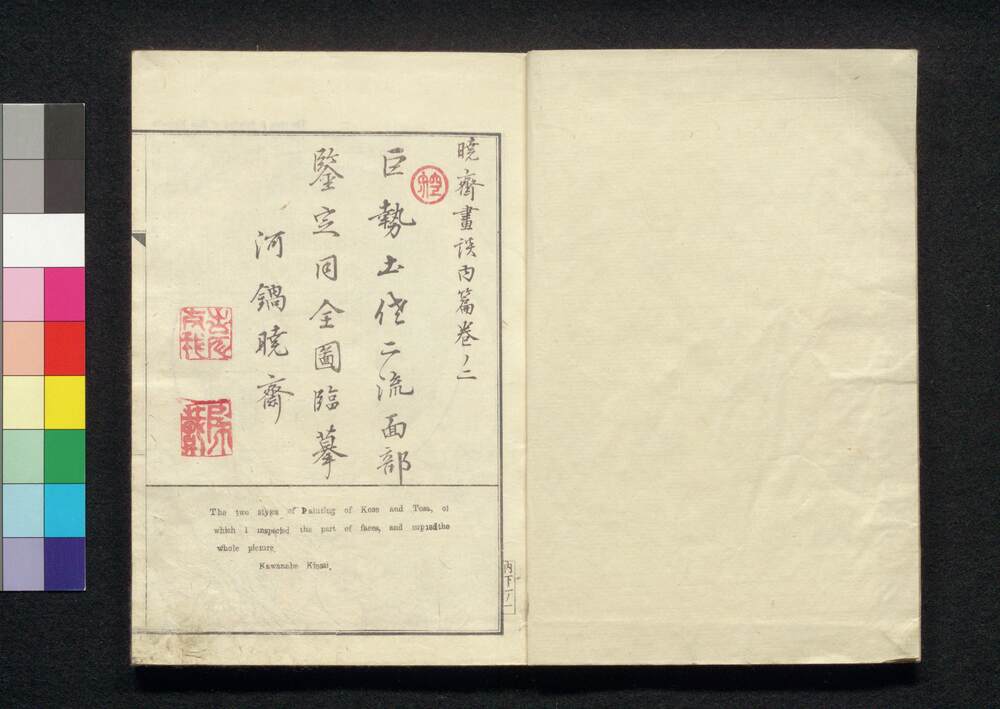 暁齋畫談内篇巻ノ二
巨勢土佐二流面部
鑒定同全圖臨摹
河鍋暁齋
The two styes of Painting of Kose and Tosa, of
which I inspected the part of faces, and copied the
whole picture.
Kawanabe Kiosai.
内下ノ一